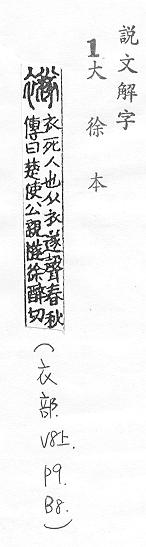 説文解字
1大徐本
襚
衣死人也从衣遂聲春秋
傳曰楚使公親襚徐醉切
(衣部. V8上. P9. B8.)